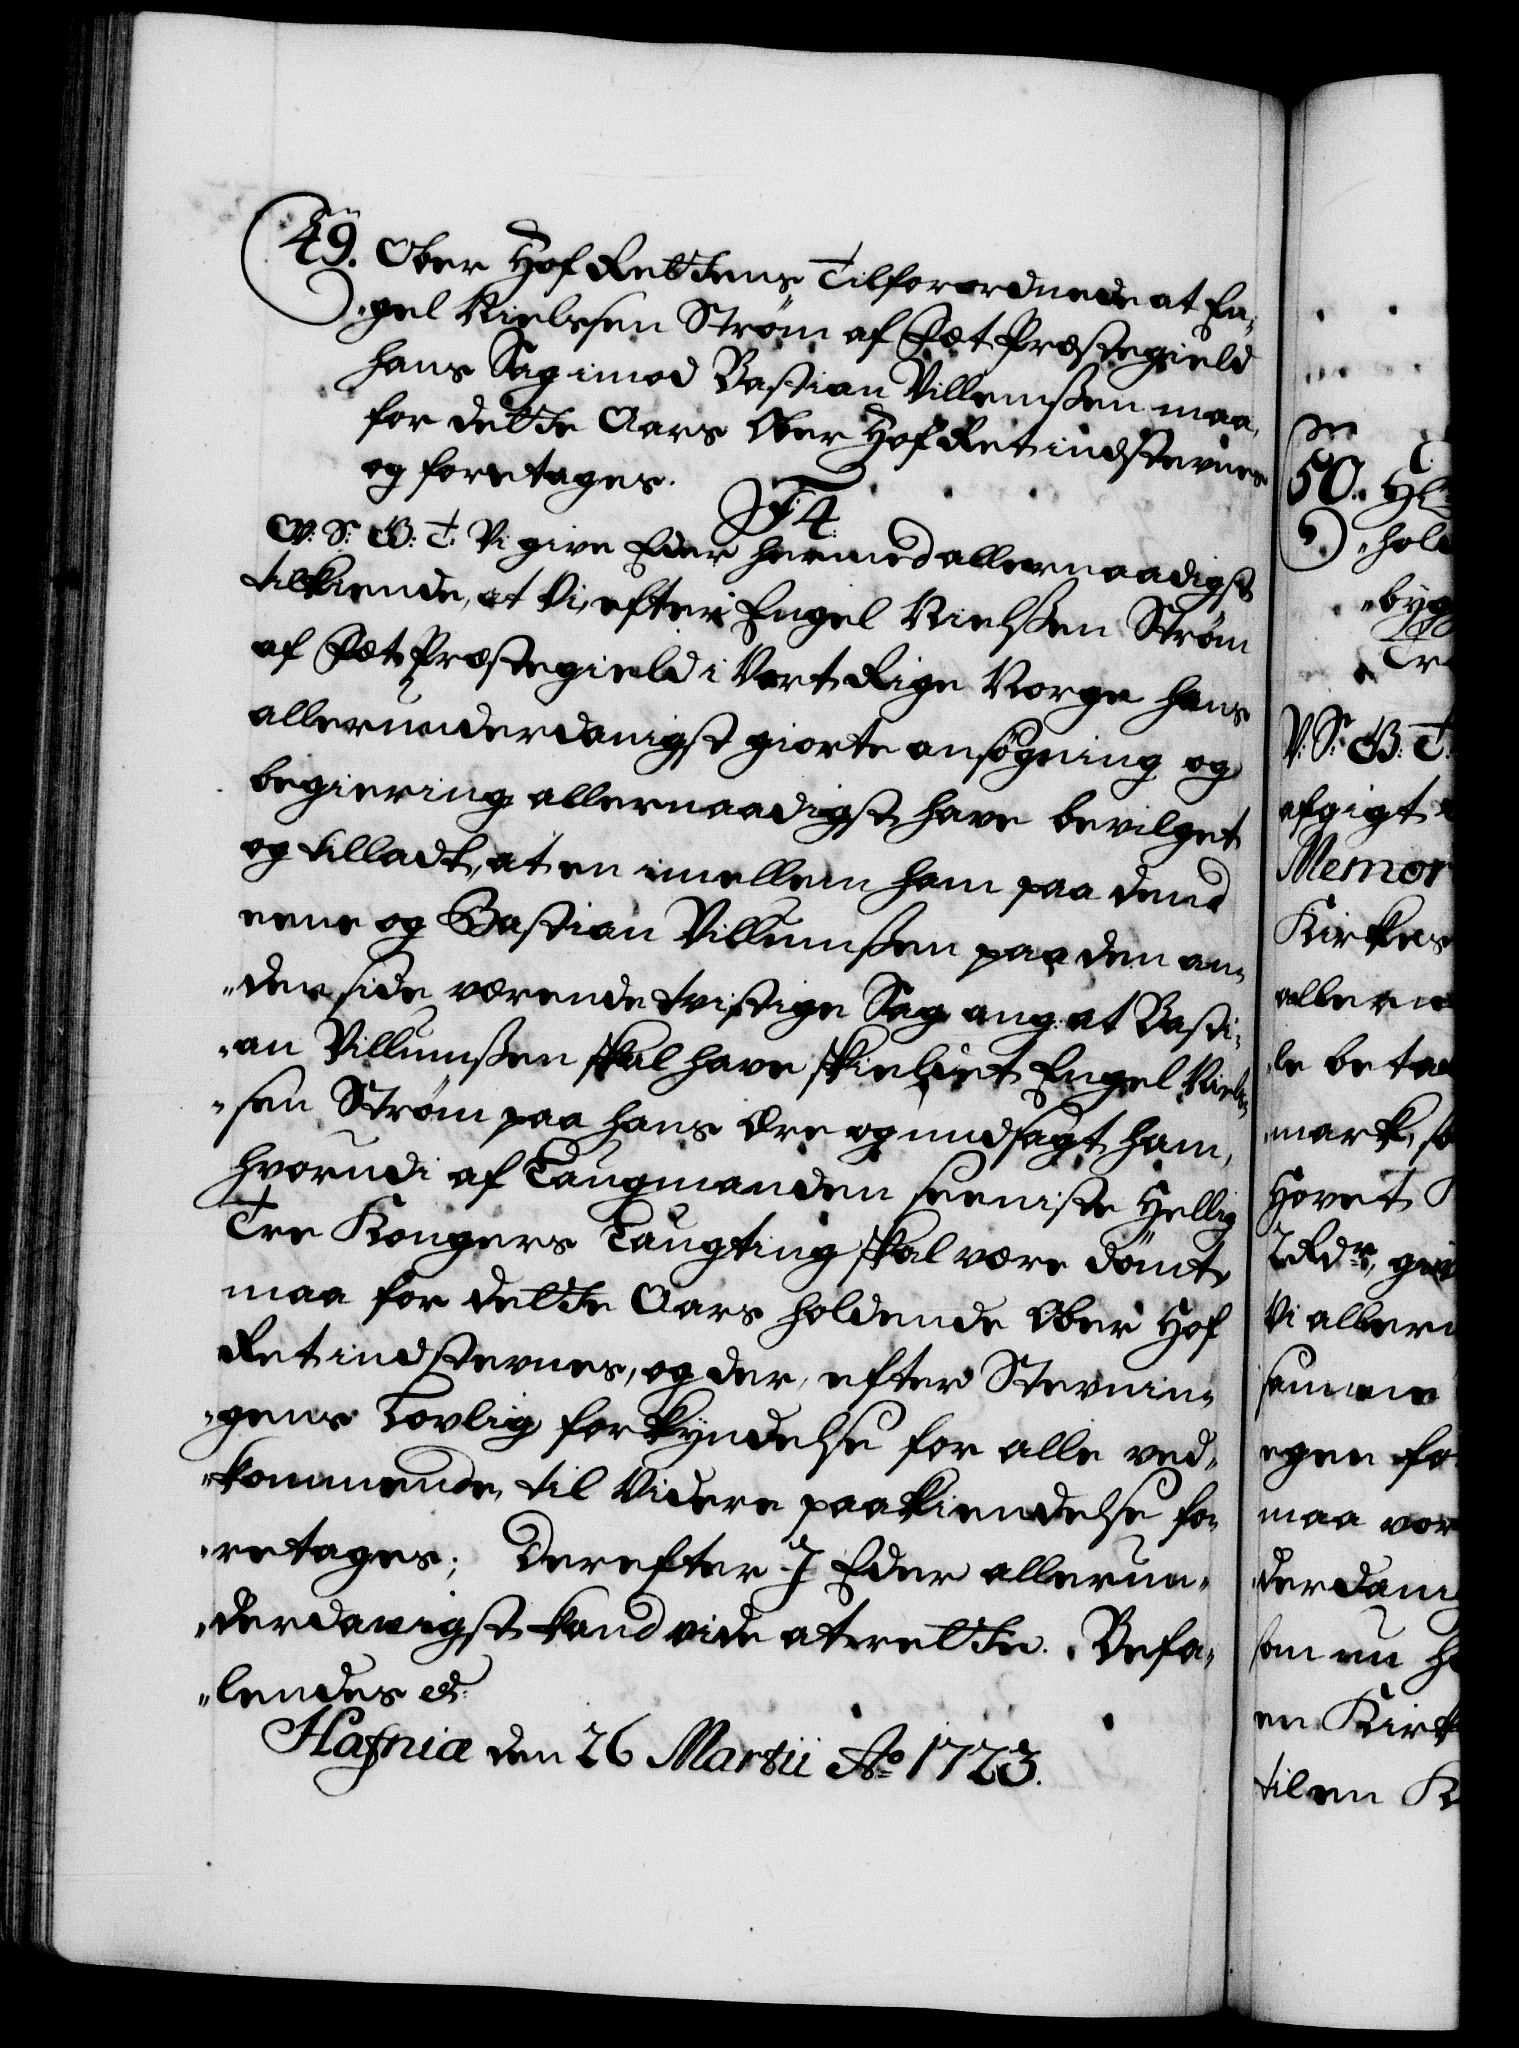 49. Ober Hof Rettens Tilforordnede at En-
"gel Nielssen Strøm af Sæt Præstegield
hans Sag imod Bastian Villemssen maa,
for dette Aars Ober Hof Ret indstevnes
og foretages.
F4.
V: S: G: T: Vi give Eder hermed allernaadigst
tilkiende, at Vi, efter Engel Nielssen Strøm
af Sæt Præstegield i Vort Rige Norge hans
allerunderdanigst giorte ansøgning og
begiering allernaadigst have bevilget
og tilladt, at en imellem ham paa dend
eene og Bastian Villumssen paa den an-
"den side værende tvistige Sag ang: at Basti-
"an Villumssen skal have skieldet Engel Niels-
"sen Strøm paa hans Ære og undsagt ham,
hvorudi af Laugmanden seeniste Hellig
Tre Kongers Laugting skal være dömt,
maa for dette Aars holdende Ober Hof
Ret indstevnes, og der, efter Stevnin-
"gens Lovlig forkyndelse for alle ved-
"kommende, til Videre paakiendelse fo-
"retages; Derefter I Eder allerun-
"derdanigst kand vide at rette. Befa-
"lendes etc:
Hafniæ den 26 Martii Ao 1723.
50.
"hol
"byg
Tr
V: S: G: T:
afgigt
Memor
Kirkes
allern
le beta
"mark, so
Hovet
2 Rdr, giv
Vi allern
samme
egen fo
maa vor
"derdani
som nu h
en Kirk
til en K